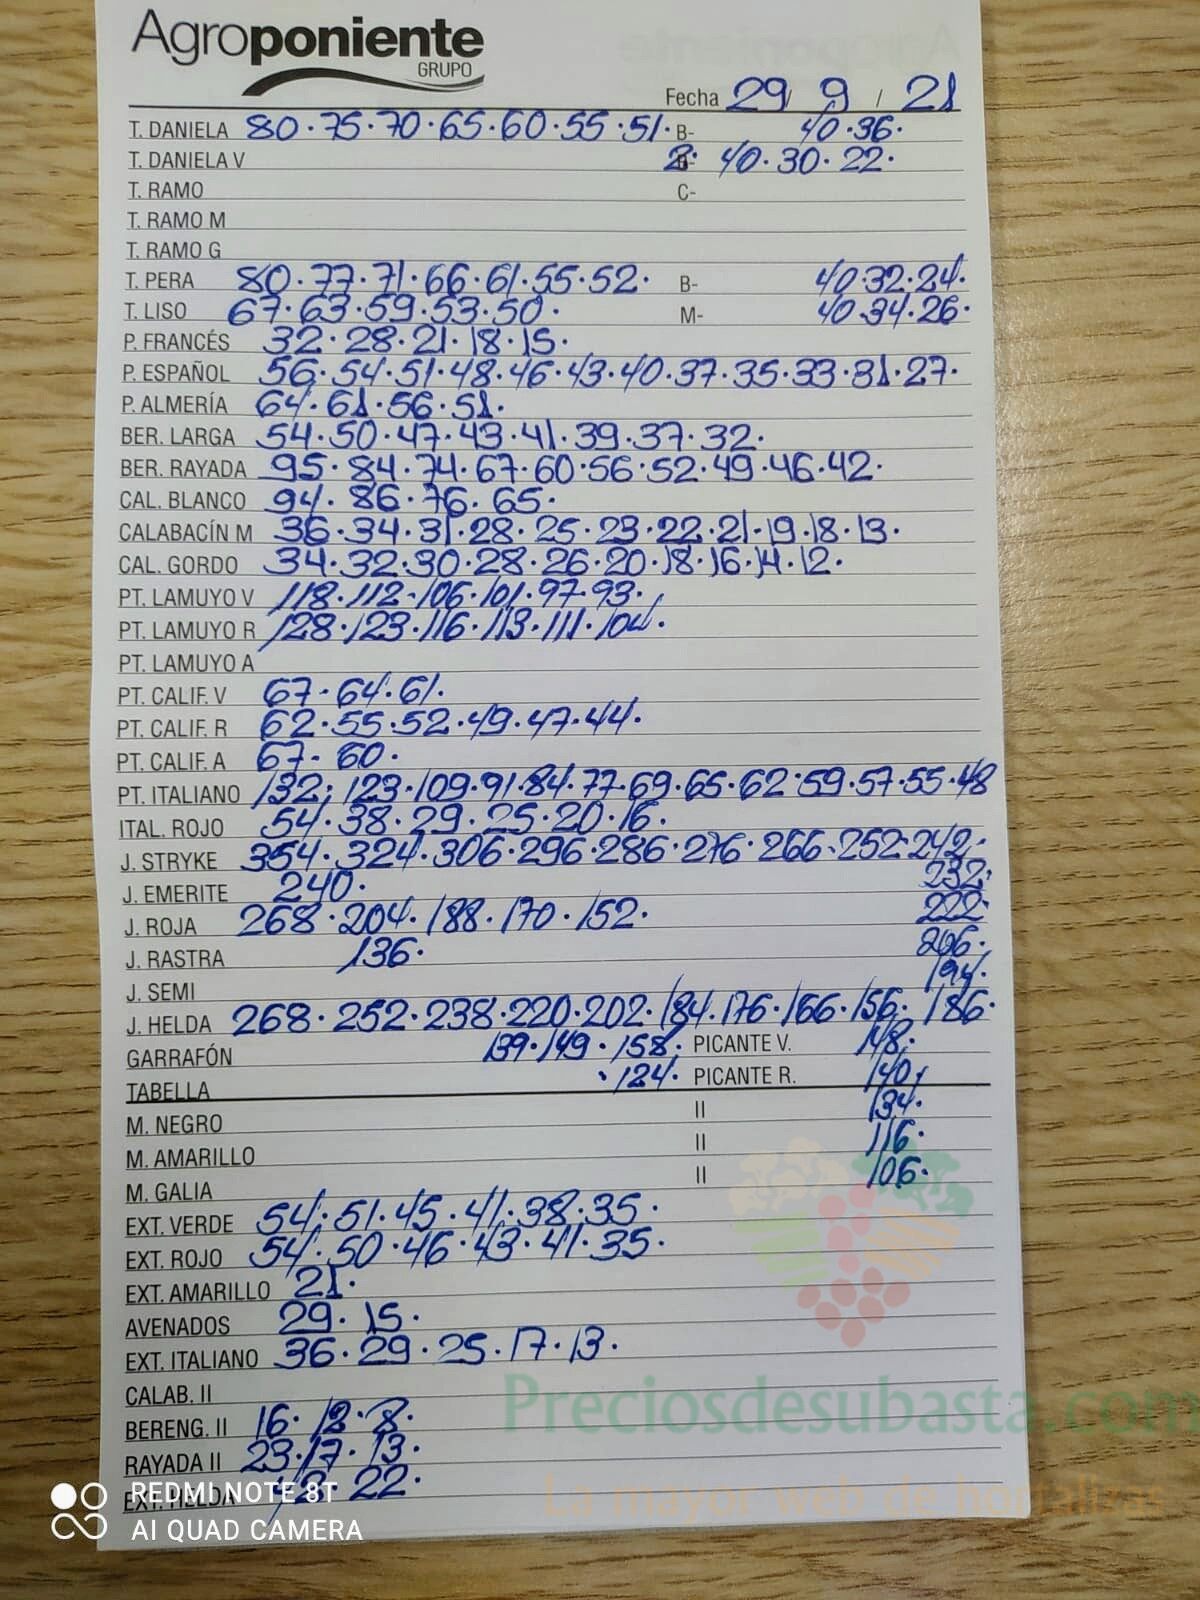 Agroponiente
GRUPO
Fecha 29 / 9 / 21
T. DANIELA 80·75·70·65·60·55·51· B- 40·36·
T. DANIELA V 2· 40·30·22·
T. RAMO C-
T. RAMO M
T. RAMO G
T. PERA 80·77·71·66·61·55·52· B- 40·32·24·
T. LISO 67·63·59·53·50· M- 40·34·26·
P. FRANCÉS 32·28·21·18·15·
P. ESPAÑOL 56·54·51·48·46·43·40·37·35·33·31·27·
P. ALMERÍA 64·61·56·51·
BER. LARGA 54·50·47·43·41·39·37·32·
BER. RAYADA 95·84·74·67·60·56·52·49·46·42·
CAL. BLANCO 94·86·76·65·
CALABACÍN M 36·34·31·28·25·23·22·21·19·18·13·
CAL. GORDO 34·32·30·28·26·20·18·16·14·12·
PT. LAMUYO V 118·112·106·101·97·93·
PT. LAMUYO R 128·123·116·113·111·104·
PT. LAMUYO A
PT. CALIF. V 67·64·61·
PT. CALIF. R 62·55·52·49·47·44·
PT. CALIF. A 67·60·
PT. ITALIANO 132·123·109·91·84·77·69·65·62·59·57·55·48
ITAL. ROJO 54·38·29·25·20·16·
J. STRYKE 354·324·306·296·286·276·266·252·242·
J. EMERITE 240· 232·
J. ROJA 268·204·188·170·152· 222·
J. RASTRA 136· 206·
J. SEMI 194·
J. HELDA 268·252·238·220·202·184·176·166·156· 186·
GARRAFÓN 139·149·158· PICANTE V. 148·
TABELLA ·124· PICANTE R. 140·
M. NEGRO II 134·
M. AMARILLO II 116·
M. GALIA II 106·
EXT. VERDE 54·51·45·41·38·35·
EXT. ROJO 54·50·46·43·41·35·
EXT. AMARILLO 21·
AVENADOS 29·15·
EXT. ITALIANO 36·29·25·17·13·
CALAB. II
Preciosdesubasta.com
BERENG. II 16·12·8·
RAYADA II 23·17·13·
La mayor web de hortalizas
EXT. HELDA 42·22·
REDMI NOTE 8T
AI QUAD CAMERA